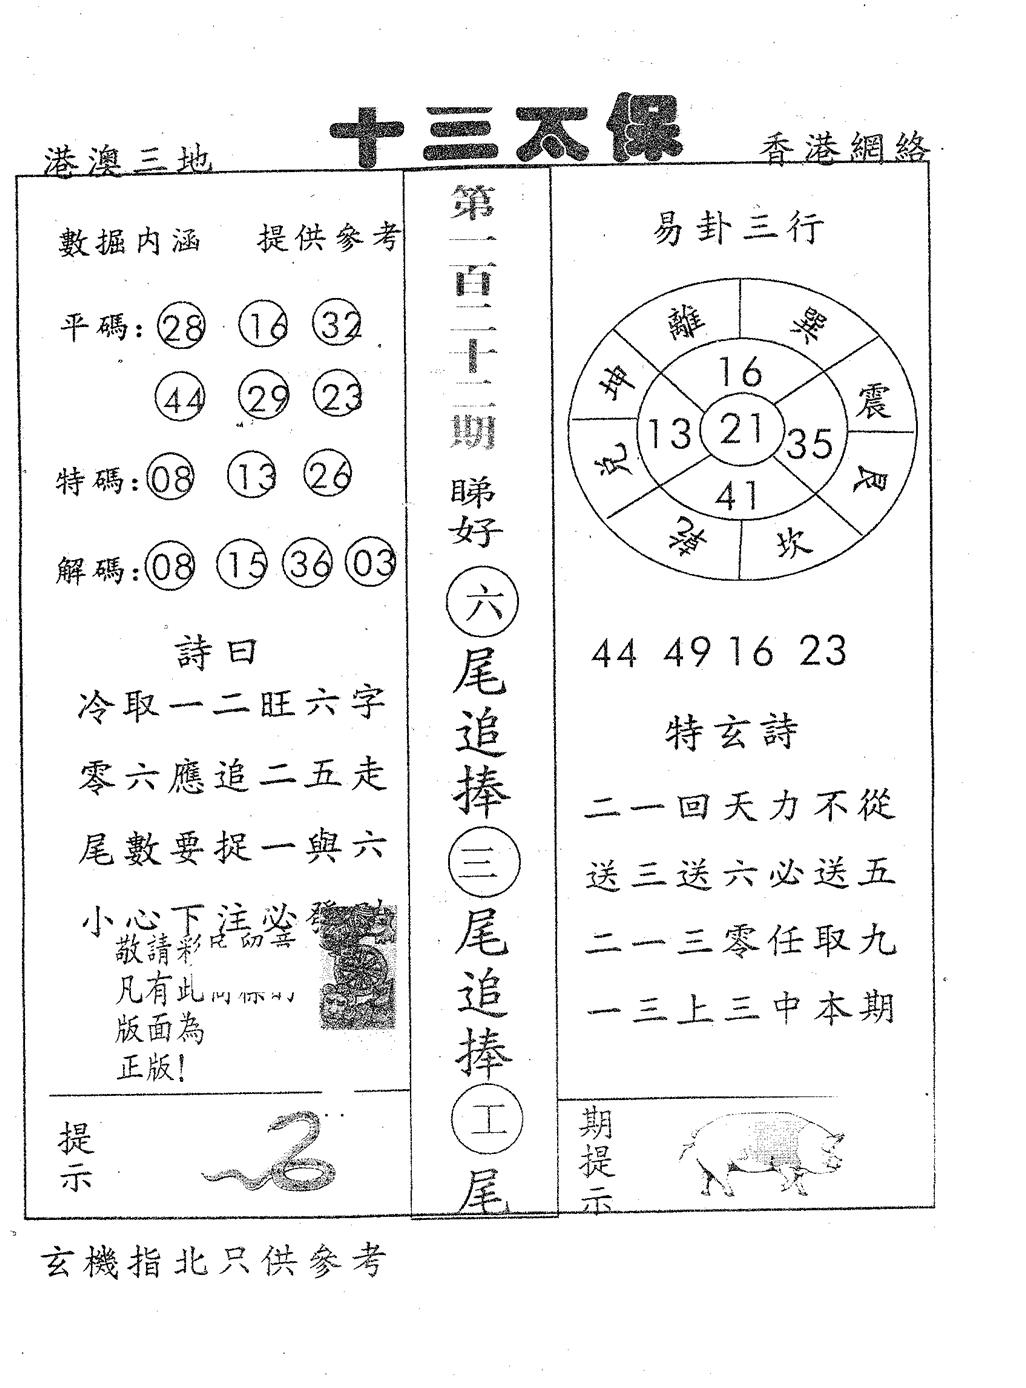 十三太保
港澳三地
香港網絡
數掘内涵 提供參考
平碼: 28 16 32
44 29 23
特碼: 08 13 26
解碼: 08 15 36 03
詩曰
冷取一二旺六字
零六應追二五走
尾數要捉一與六
小心下注必發
敬請彩民留意
凡有此
版面為
正版!
提示
第一百二十二期
睇好
六
尾
追
捧
三
尾
追
捧
工
尾
易卦三行
離 巽
坤 震
兌 艮
乾 坎
16
13 21 35
41
44 49 16 23
特玄詩
二一回天力不從
送三送六必送五
二一三零任取九
一三上三中本期
期提示
玄機指北只供參考